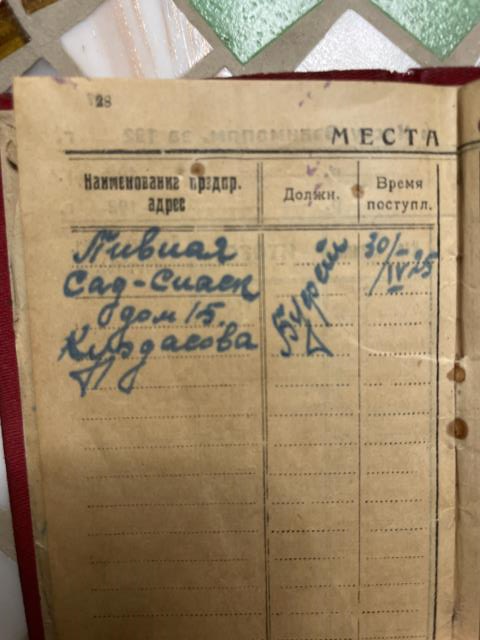 28
МЕСТА
Наименование предпр.
адрес
Должн.
Время
поступл.
Пивная
Сад-Спаск
дом 15.
Курдасова
30/IV 25